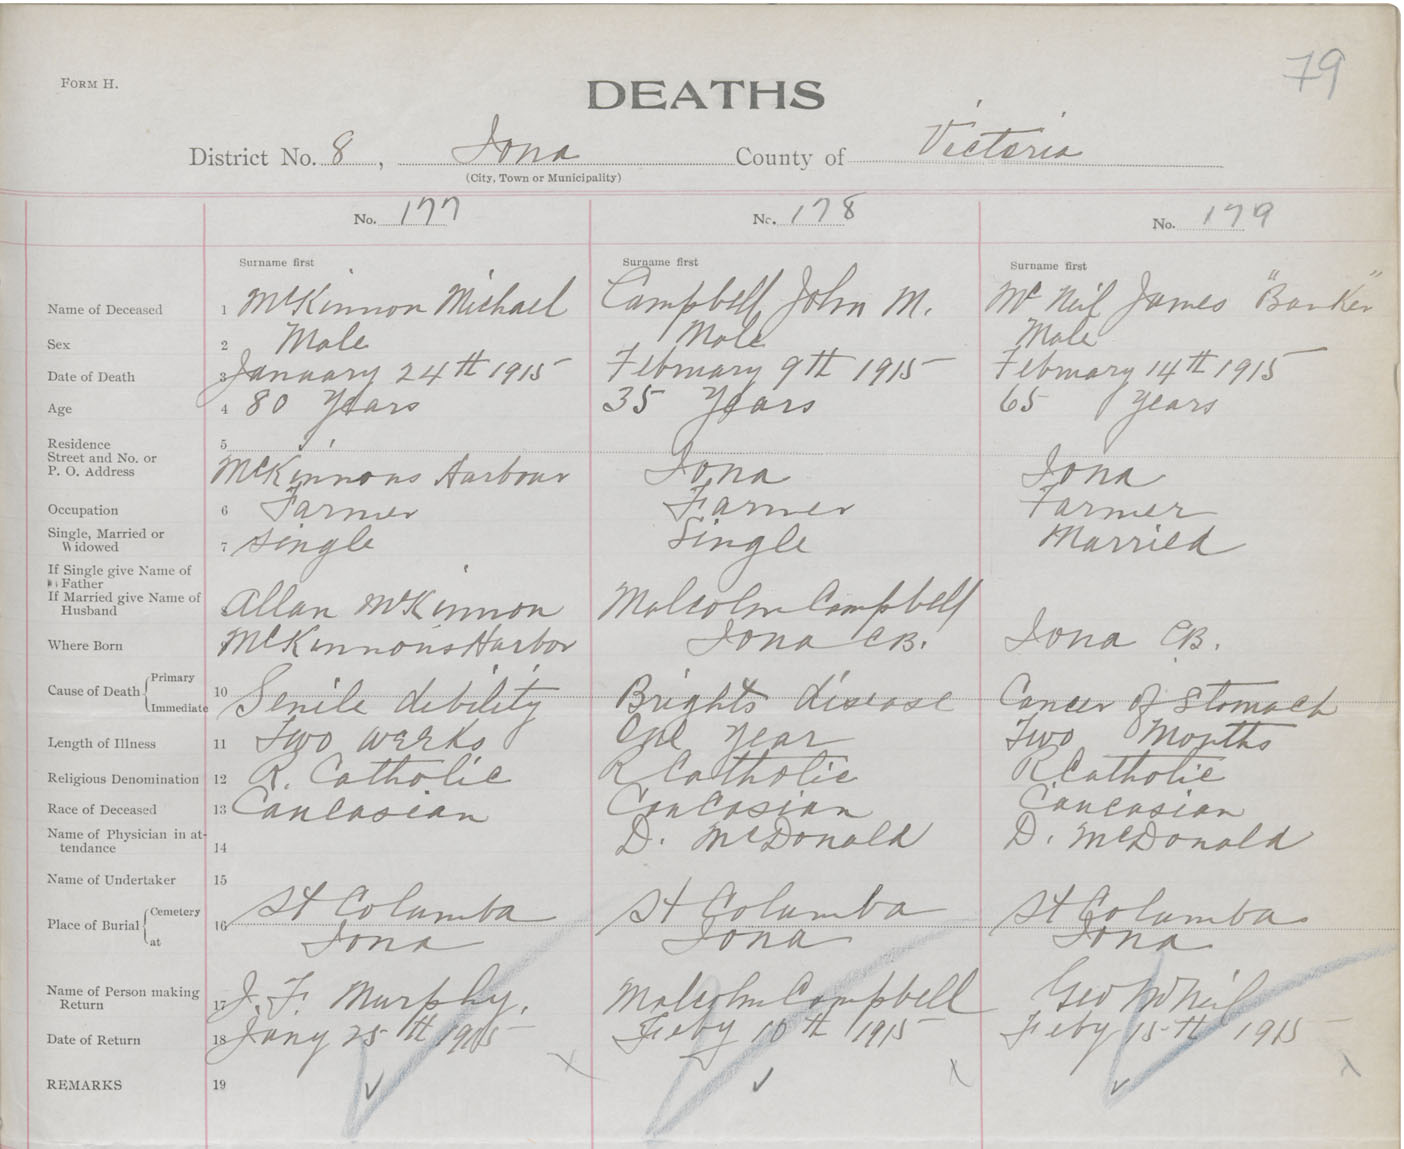 79
FORM H.
DEATHS
District No. 8, Iona County of Victoria
(City, Town or Municipality)
No. 177 No. 178 No. 179
Surname first Surname first Surname first
Name of Deceased 1 McKinnon Michael Campbell John M. McNeil James "Banker"
Sex 2 Male Male Male
Date of Death 3 January 24th 1915 February 9th 1915 February 14th 1915
Age 4 80 Years 35 Years 65 Years
Residence 5
Street and No. or
P. O. Address McKinnons Harbour Iona Iona
Occupation 6 Farmer Farmer Farmer
Single, Married or
Widowed 7 Single Single Married
If Single give Name of
Father
If Married give Name of
Husband Allan McKinnon Malcolm Campbell
Where Born McKinnons Harbor Iona CB. Iona CB.
Cause of Death Primary
Immediate 10 Senile debility Brights disease Cancer of Stomach
Length of Illness 11 Two weeks One Year Two Months
Religious Denomination 12 R. Catholic R Catholic R Catholic
Race of Deceased 13 Caucasian Caucasian Caucasian
Name of Physician in at-
tendance 14 D. McDonald D. McDonald
Name of Undertaker 15
Place of Burial Cemetery 16 St Columba St Columba St Columba
at Iona Iona Iona
Name of Person making
Return 17 J. F. Murphy. Malcolm Campbell Geo McNeil
Date of Return 18 Jany 25th 1915 Feby 10th 1915 Feby 15th 1915
REMARKS 19